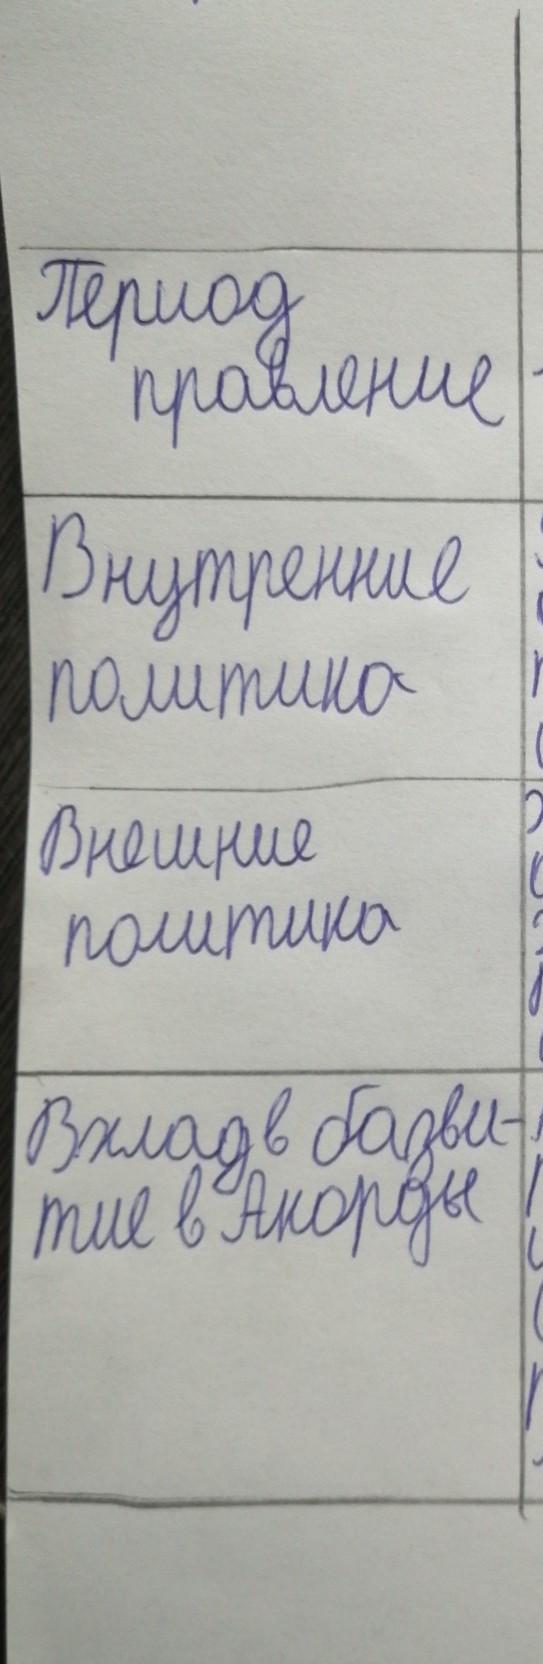 Период
правление
Внутренние
политика
Внешние
политика
Вклад в базви-
тие в Акорды